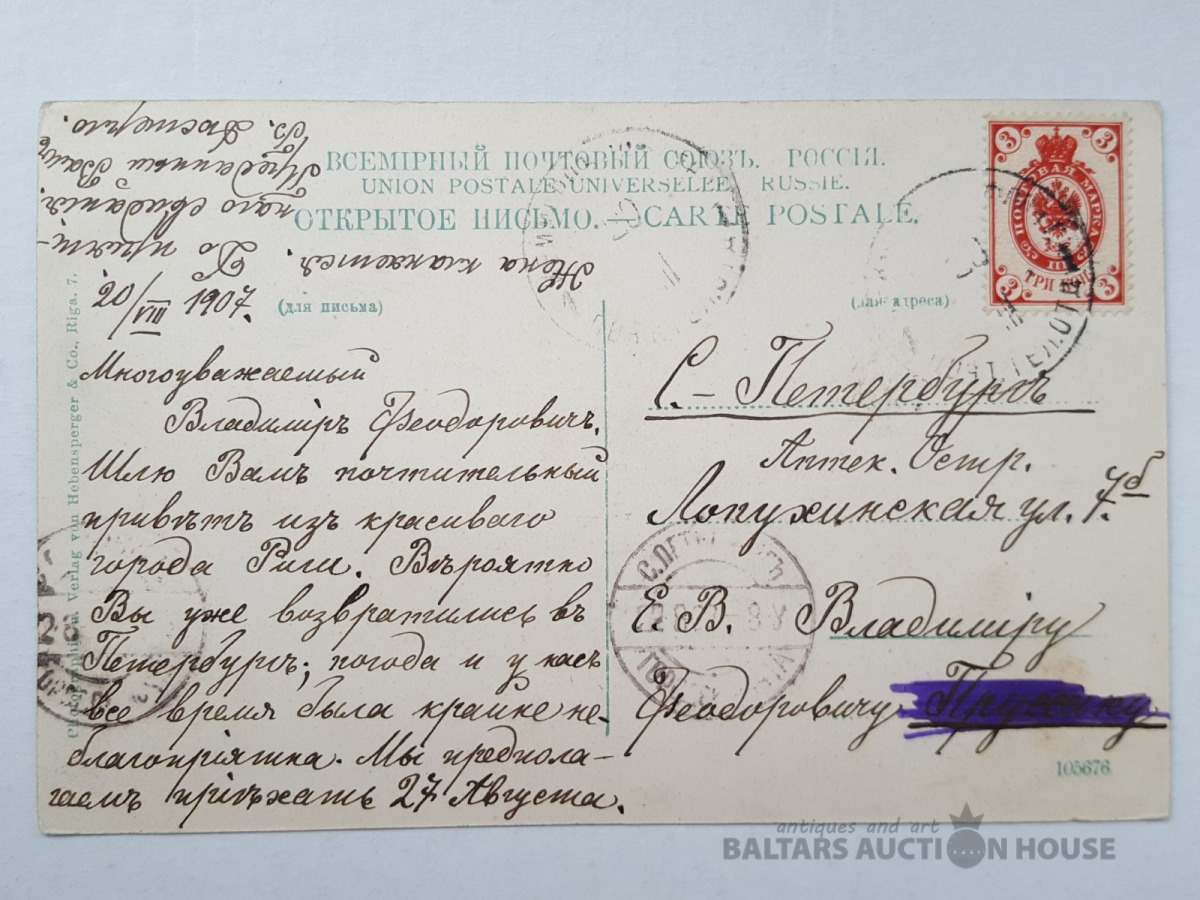 ВСЕМІРНЫЙ ПОЧТОВЫЙ СОЮЗЪ. РОССІЯ.
UNION POSTALE UNIVERSELLE. RUSSIE.
ОТКРЫТОЕ ПИСЬМО. — CARTE POSTALE.
(для письма)
20/VIII 1907.
Многоуважаемый
Владиміръ Феодоровичъ.
Шлю Вамъ почтительный
привѣтъ изъ красиваго
города Риги. Вѣроятно
Вы уже возвратились въ
Петербургъ; погода и у насъ
все время была крайне не-
благопріятна. Мы предпола-
гаемъ пріѣхать 27 Августа.
Жена кланяется. До пріят-
наго свиданія.
Преданный Вамъ
(для адреса)
С.-Петербургъ
Аптек. Остр.
Лопухинская ул. 7б
Е. В. Владиміру
Феодоровичу
105676
3 3
ПОЧТОВАЯ МАРКА
ТРИ КОП.
3 3
С.ПЕТЕРБУРГЪ
Photographie u. Verlag von Hebensperger & Co., Riga. 7.
antiques and art
BALTARS AUCTION HOUSE